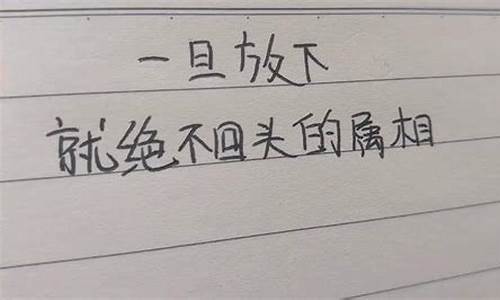 一旦放下
就绝不回头的属相